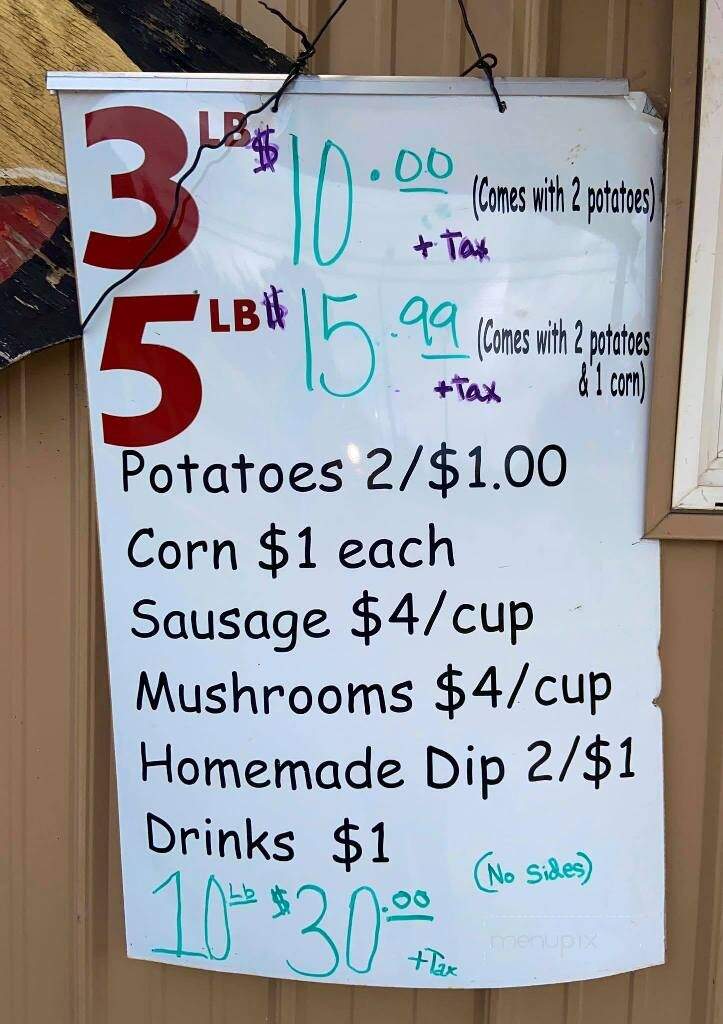 3 LB $10.00 (Comes with 2 potatoes)
+ Tax
5 LB $15.99 (Comes with 2 potatoes
& 1 corn)
+Tax
Potatoes 2/$1.00
Corn $1 each
Sausage $4/cup
Mushrooms $4/cup
Homemade Dip 2/$1
Drinks $1
(No sides)
10 Lb $30.00
+Tax
menupix